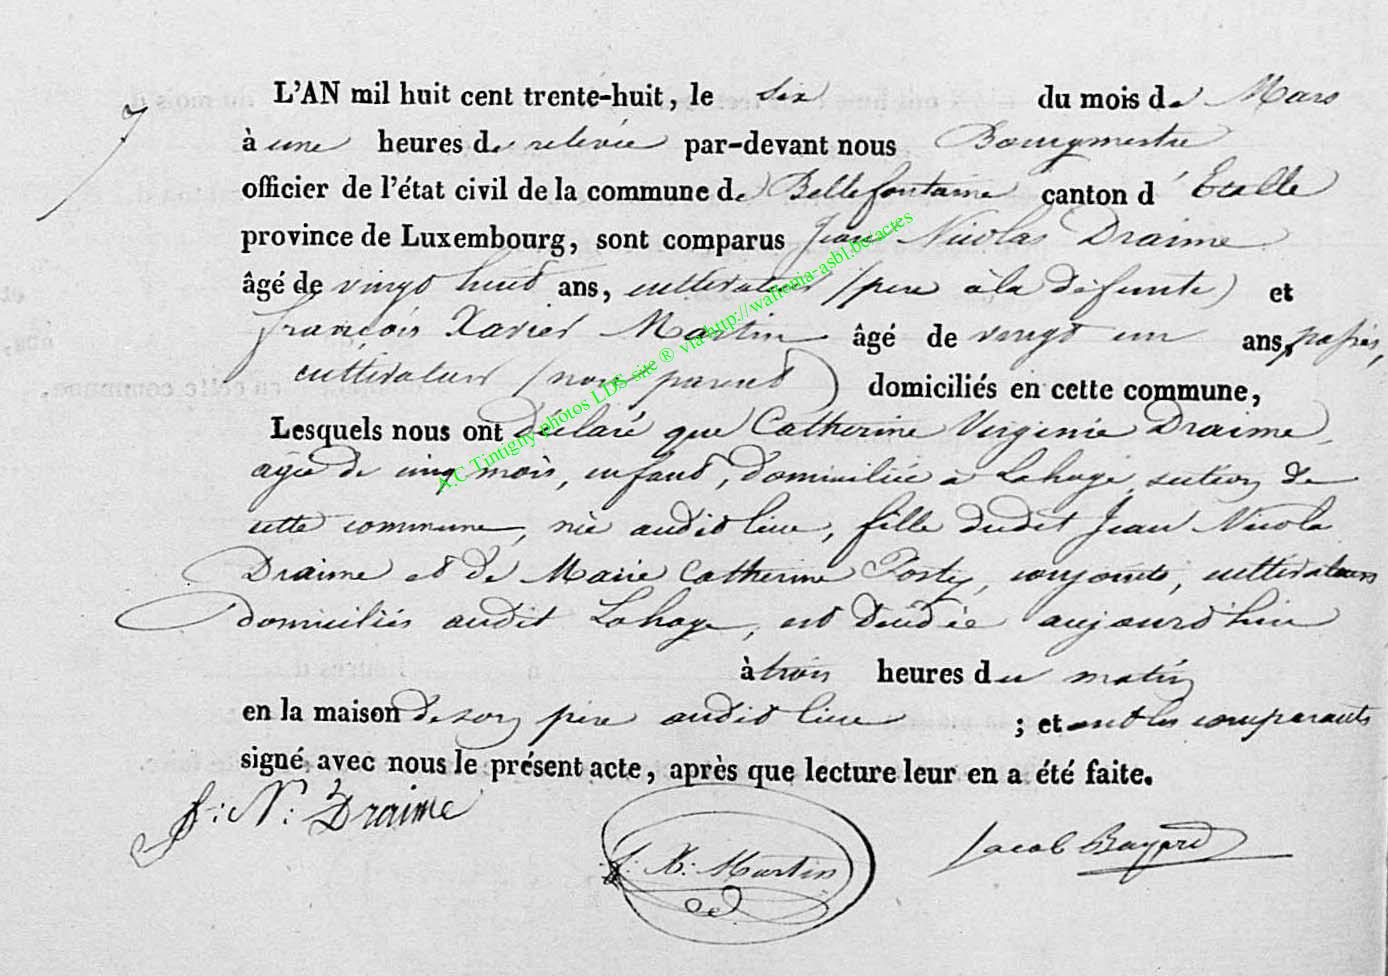 7
L'AN mil huit cent trente-huit, le six du mois de Mars
à une heures de relevée par-devant nous Bourgmestre
officier de l'état civil de la commune de Bellefontaine canton d' Etalle
province de Luxembourg, sont comparus Jean Nicolas Draime
âgé de vingt huit ans, cultivateur (pere à la défunte) et
françois Xavier Martin âgé de vingt un ans, passés,
cultivateur (non parent) domiciliés en cette commune,
Lesquels nous ont déclaré que Catherine Virginie Draime,
agée de cinq mois, enfant, domiciliée à Lahage, section de
cette commune, née audit lieu, fille dudit Jean Nicola
Draime et de Marie Catherine conjoints, cultivateurs
domiciliés audit Lahage, est décédée aujourd'hui
à trois heures du matin
en la maison de son père audit lieu ; et ont les comparants
signé avec nous le présent acte, après que lecture leur en a été faite.
J: N: Draime
f: X: Martin
Jacob Bayard
A.C Tintigny photos LDS site ® via http://wallonia-asbl.be/actes